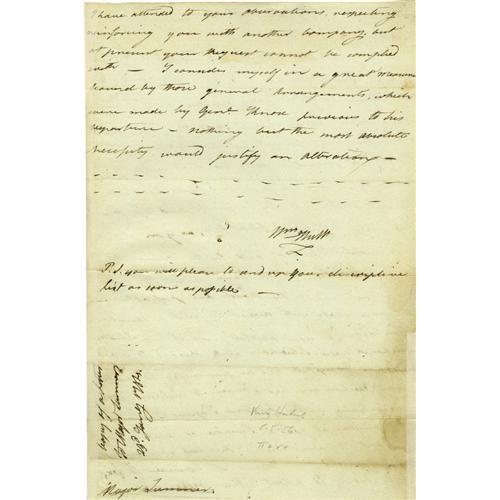 I have attended to your observations, respecting
reinforcing you with another Company, but
at present your request cannot be complied
with — I consider myself in a great measure
bound by those general Arrangements, which
were made by Genl. Knox previous to his
departure — nothing but the most absolute
necessity would justify an alteration —
Wm Hull
P.S. you will please to send on your discriptive
list as soon as possible —
Major Turner